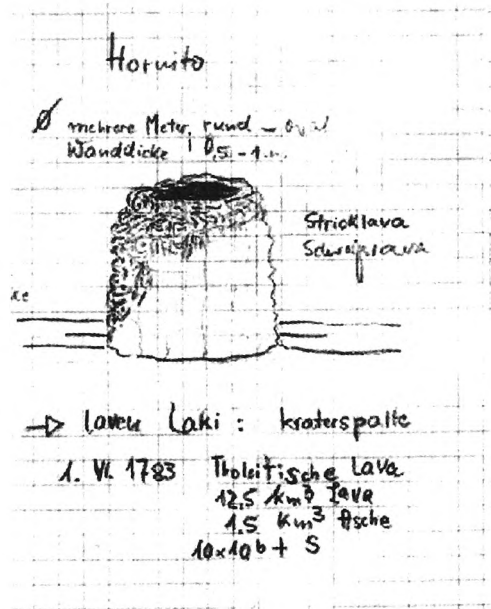 Hornito
Ø mehrere Meter, rund - oval
Wanddicke 0,5 - 1 m
Stricklava
ke
→ Laven Laki: kraterspalte
1. VI. 1783 Tholeiitische Lava
12,5 km³ Lava
1.5 km³ Asche
10×10⁶ t S